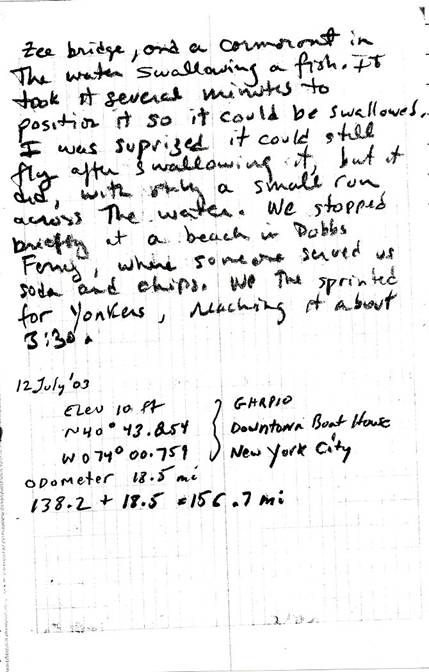 Zee bridge, and a cormorant in
The water swallowing a fish. It
took it several minutes to
position it so it could be swallowed.
I was suprized it could still
fly after swallowing it, but it
did, with only a small run
across The water. We stopped
briefly at a beach in Dobbs
Ferry, where someone served us
soda and chips. We The sprinted
for Yonkers, reaching it about
3:30.
12 July '03
Elev 10 ft } GHRP10
N40° 43.854 Downtown Boat House
W074° 00.759 New York City
ODOMeter 18.5 mi
138.2 + 18.5 = 156.7 mi